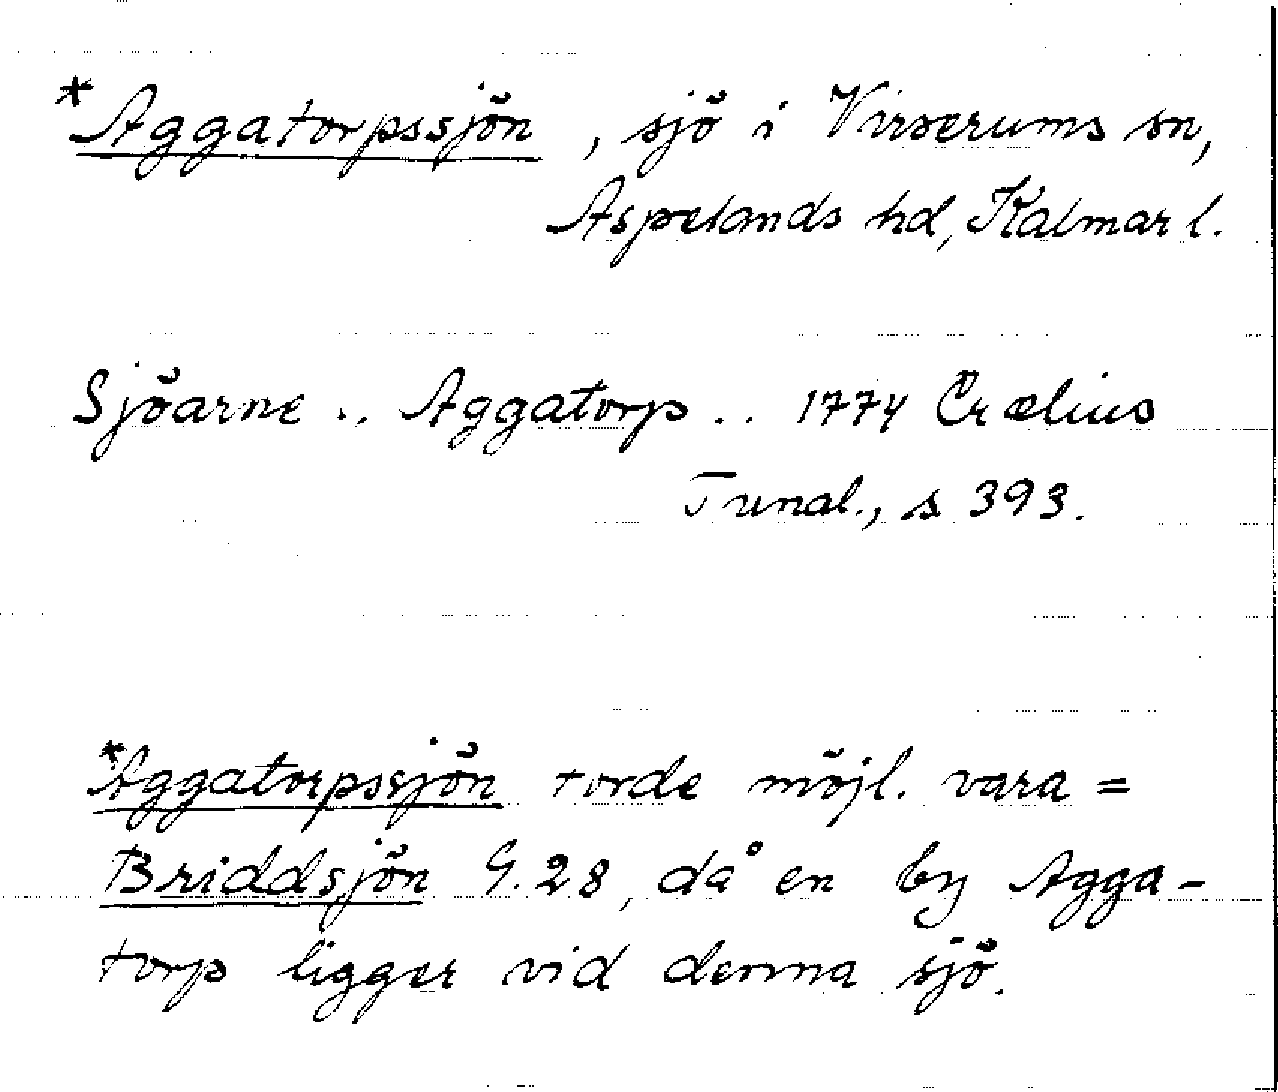 *Aggatorpssjön, sjö i Virserums sn,
Aspelands hd, Kalmar l.
Sjöarne .. Aggatorp .. 1774 Crælius
Tunal., s 393.
*Aggatorpssjön torde möjl. vara =
Briddsjön G. 28, då en by Agga-
torp ligger vid denna sjö.